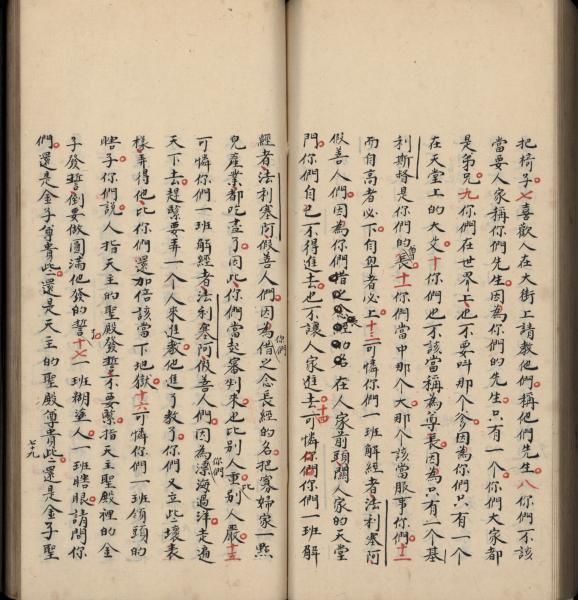 把椅子七喜歡人在大街上請教他們稱他們先生八你們不該
當要人家稱你們先生因為你們的先生只有一個你們大家都
是弟兄九你們在世界上也不要呌那個爹因為你們只有一个
在天堂上的大父十你們也不該當稱為尊長因為只有一个基
利斯督是你們的長十一你們當中那个大那个該當服事你們十二
而自高者必下自卑者必上十三可憐你們一班解經者法利塞阿
假善人們因為你們在人家前頭關人家的天堂
門你們自己不得進去也不讓人家進去十四可憐你們你們一班解
經者法利塞阿假善人們因為你們借之念長經的名把寡婦家一點
兒產業都吃當了因此你們當起審判來也比別人重比別人嚴十五
可憐你們一班解經者法利塞阿假善人們因為你們漂海過洋走遍
天下去趕緊要弄一个人來進教他進了教了你們又立些壞表
樣弄得他比你們還加倍該當下地獄十六可憐你們一班領頭的
瞎子你們說人指天主的聖殿發誓不要緊指天主聖殿裡的金
子發誓倒要做圓滿他發的誓十七一班糊塗人一班瞎眼請問你
們還是金子尊貴些還是天主的聖殿尊貴些還是金子聖
七十九